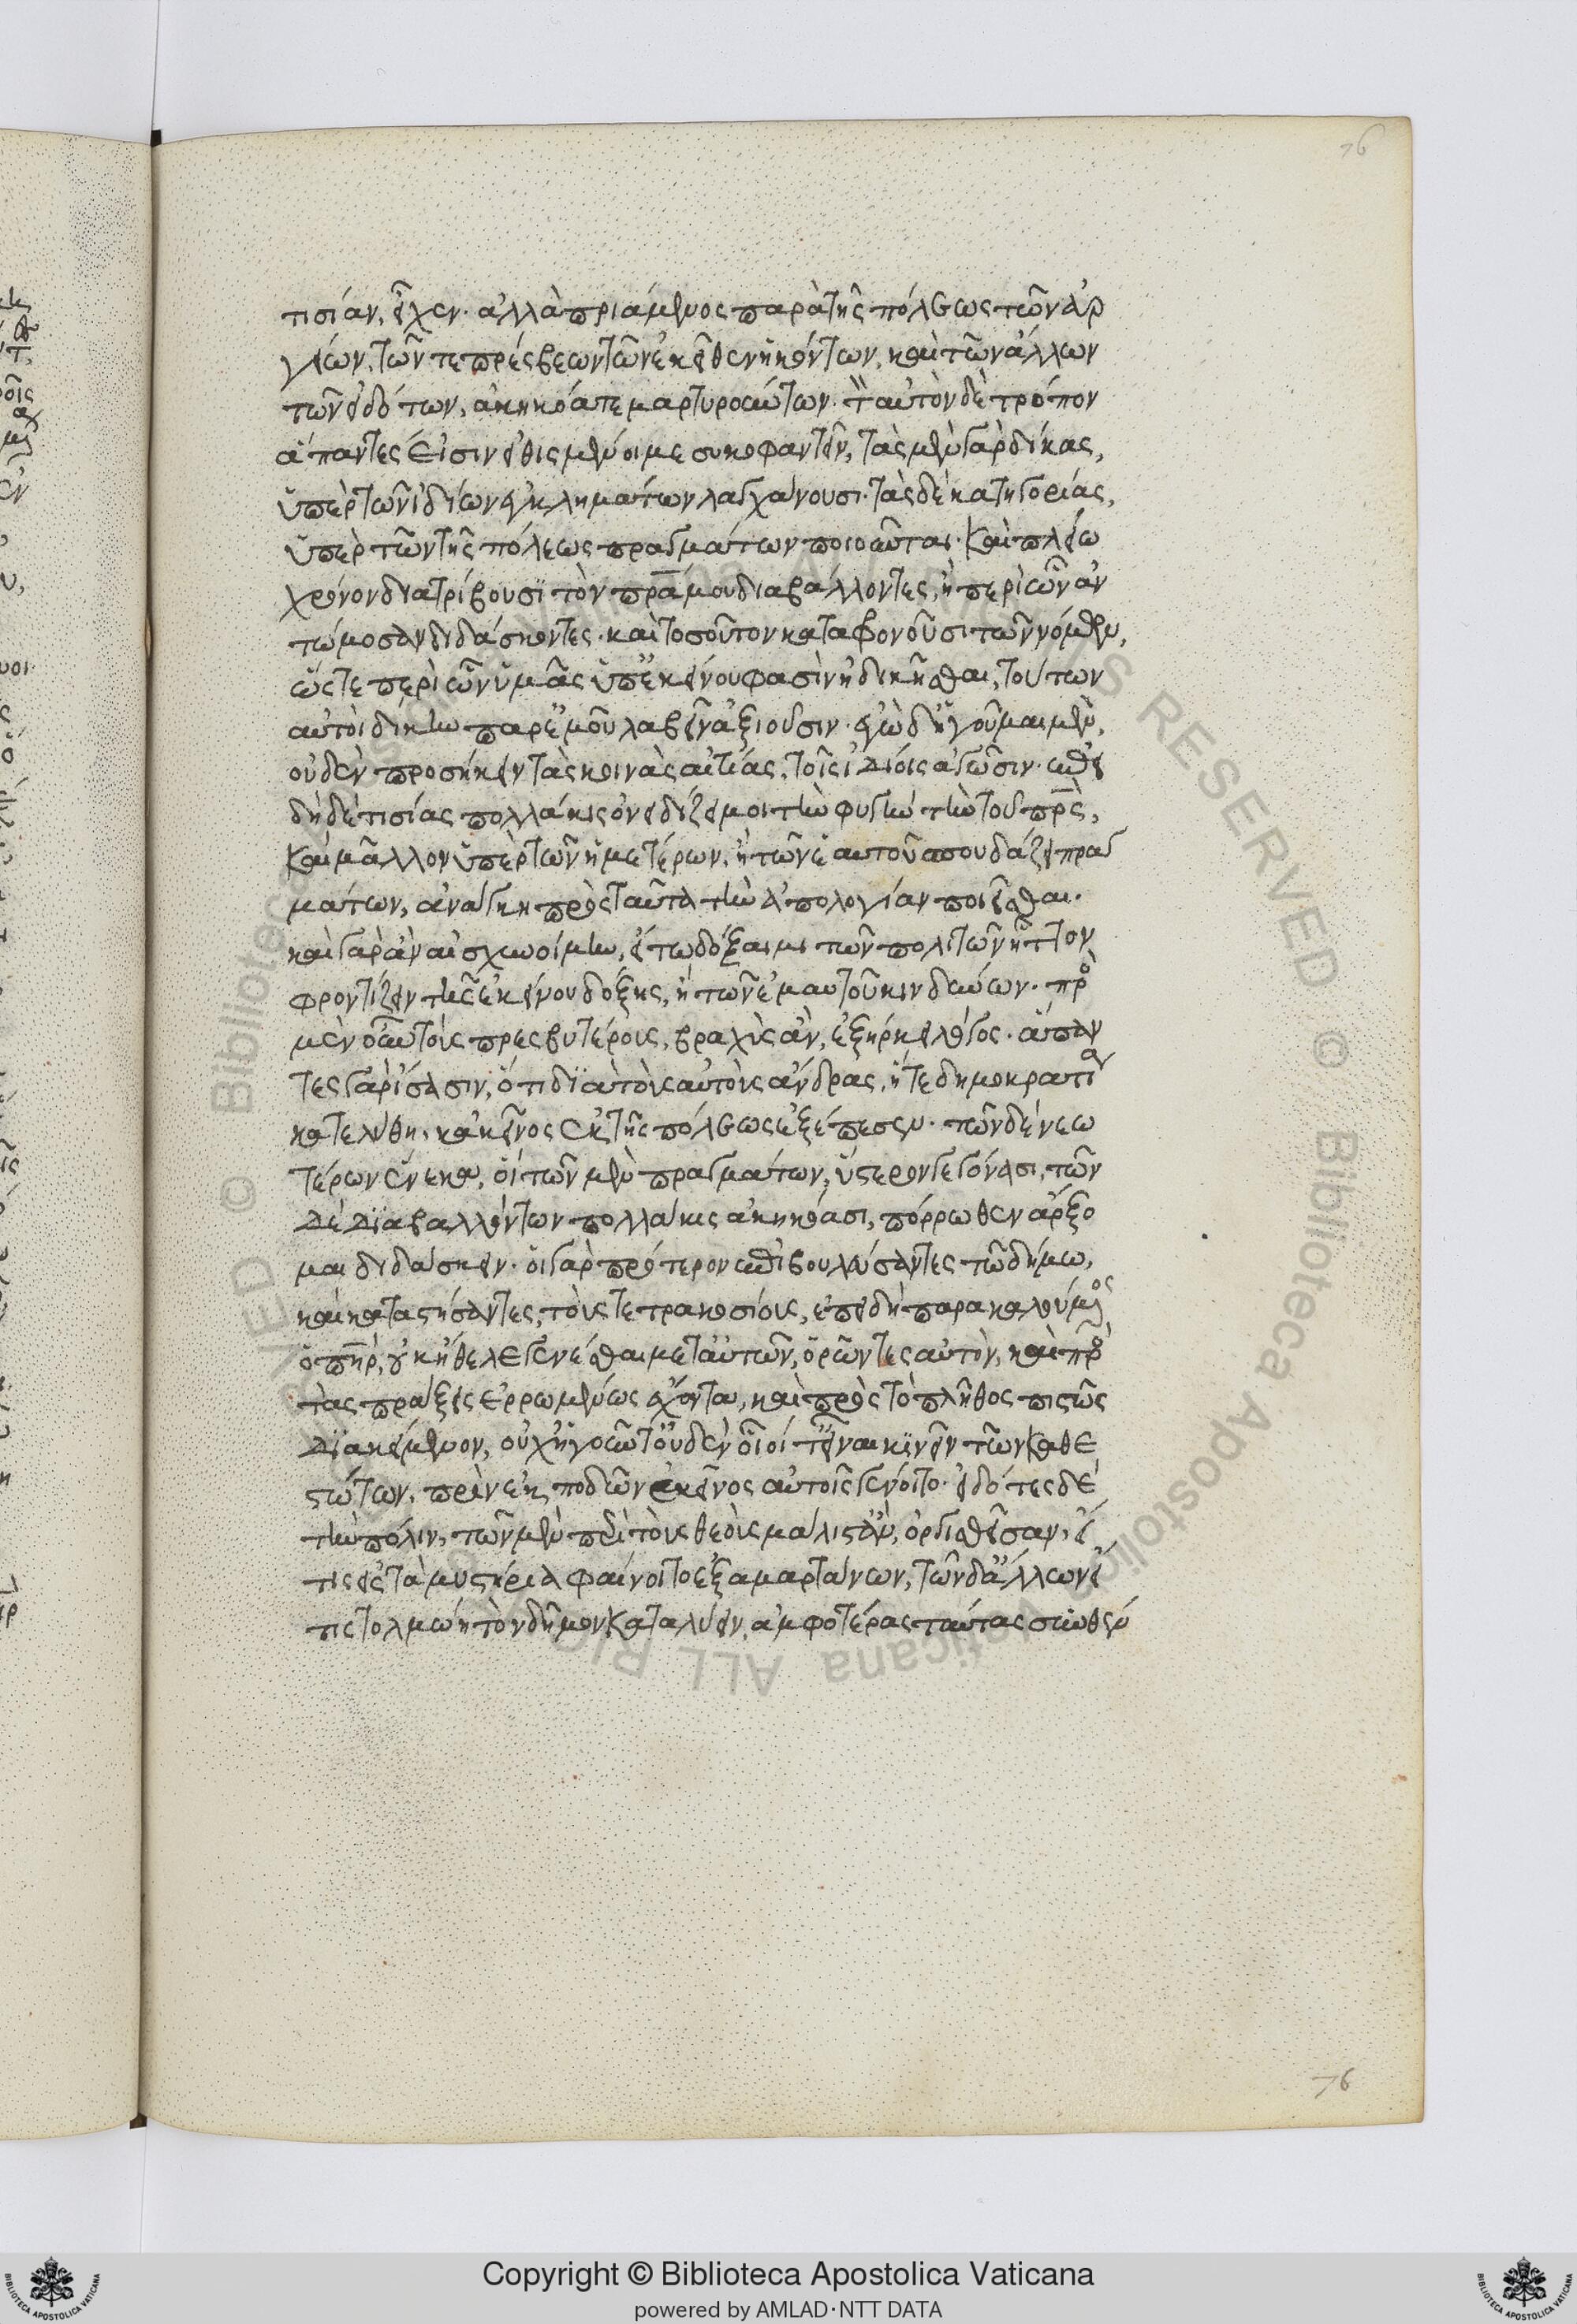 76
τισίαν, εἶχεν· ἀλλὰ πριάμενος παρὰ τῆς πόλεως τῶν ἀρ
γείων, τῶν τε πρέσβεων τῶν ἐκεῖθεν ἡκόντων, καὶ τῶν ἄλλων
τῶν εἰδότων, ἀκηκόατε μαρτυρούντων· τὸν αὐτὸν δὲ τρόπον
ἅπαντές εἰσιν εἰθισμένοι με συκοφαντεῖν, τὰς μὲν γὰρ δίκας,
ὑπὲρ τῶν ἰδίων ἐγκλημάτων λαγχάνουσι· τὰς δὲ κατηγορίας,
ὑπὲρ τῶν τῆς πόλεως πραγμάτων ποιοῦνται· καὶ πλείω
χρόνον διατρίβουσι τὸν πρα μου διαβάλλοντες, ἢ περὶ ὧν ἀν
τώμοσαν διδάσκοντες· καὶ τοσοῦτον καταφρονοῦσι τῶν νόμων,
ὥστε περὶ ὧν ὑμᾶς ὑπ' ἐκείνου φασὶν ἠδικῆσθαι, τούτων
αὐτοὶ δίκην παρ' ἐμοῦ λαβεῖν ἀξιοῦσιν· ἐγὼ δ' ἡγοῦμαι μὲν,
οὐδὲν προσήκειν τὰς κοινὰς αἰτίας, τοῖς ἰδίοις ἀγῶσιν· ἐπει
δὴ δὲ τισίας πολλάκις ὀνειδίζει μοι τὴν φυγὴν τὴν τοῦ πρς,
καὶ μᾶλλον ὑπὲρ τῶν ἡμετέρων, ἢ τῶν ἑαυτοῦ σπουδάζει πραγ
μάτων, ἀνάγκη πρὸς ταῦτα τὴν ἀπολογίαν ποιεῖσθαι·
καὶ γὰρ ἂν αἰσχυνοίμην, εἴ τω δόξαιμι τῶν πολιτῶν ἧττον
φροντίζειν τῆς ἐκείνου δόξης, ἢ τῶν ἐμαυτοῦ κινδύνων· πρὸ
μὲν οὖν τοὺς πρεσβυτέρους, βραχὺς ἂν, ἐξήρκει λόγος· ἅπαν
τες γὰρ ἴσασιν, ὅτι διὰ τοὺς αὐτοὺς ἄνδρας, ἥ τε δημοκρατία
κατελύθη, κἀκεῖνος ἐκ τῆς πόλεως ἐξέπεσεν· τῶν δὲ νεω
τέρων ἕνεκα, οἳ τῶν μὲν πραγμάτων, ὕστερον γεγόνασι, τῶν
δὲ διαβαλλόντων πολλάκις ἀκηκόασι, πόρρωθεν ἄρξο
μαι διδάσκειν· οἱ γὰρ πρότερον ἐπιβουλεύσαντες τῶ δήμω,
καὶ καταστήσαντες, τοὺς τετρακοσίους, ἐπειδὴ παρακαλούμενος
ὁ πηρ, οὐκ ἤθελε γενέσθαι μετ' αὐτῶν, ὁρῶντες αὐτὸν, καὶ πρὸ
τὰς πράξεις ἐρρωμένως ἔχοντα, καὶ πρὸς τὸ πλῆθος πιστῶς
διακείμενον, οὐχ ἡγοῦντ' οὐδὲν οἷοί τ' εἶναι κινεῖν τῶν καθε
στώτων, πρὶν ἐκποδῶν ἐκεῖνος αὐτοῖς γένοιτο· εἰδότες δὲ
τὴν πόλιν, τῶν μὲν περὶ τοὺς θεοὺς μάλιστ' ἂν, ὀργισθεῖσαν, εἴ
τις εἰς τὰ μυστήρια φαίνοιτο ἐξαμαρτάνων, τῶν δ' ἄλλων εἴ
τις τολμώη τὸν δῆμον καταλύειν, ἀμφοτέρας ταύτας συνθέν
76
Copyright © Biblioteca Apostolica Vaticana
powered by AMLAD·NTT DATA